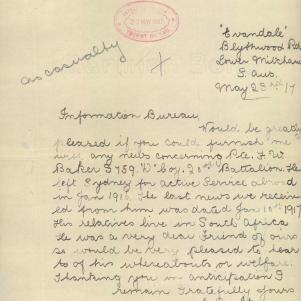 23 MAY 1917
as casualty
"Evandale"
Blythwood Rd
Lower Mitcham
S. Aus.
May 23rd 17
Information Bureau,
Would be greatly
pleased if you could furnish me
with any news concerning Pte. F. W.
Baker 5789. "D" Coy. 20th Battalion. He
left Sydney for active Service abroad
in Jan 1916. The last news we receiv
ed from him was dated Jan 10th 1917
His relatives live in South Africa
He was a very dear friend of ours
so would be very pleased to hear
to of his whereabouts or welfare.
Thanking you in anticipation I
remain Gratefully yours